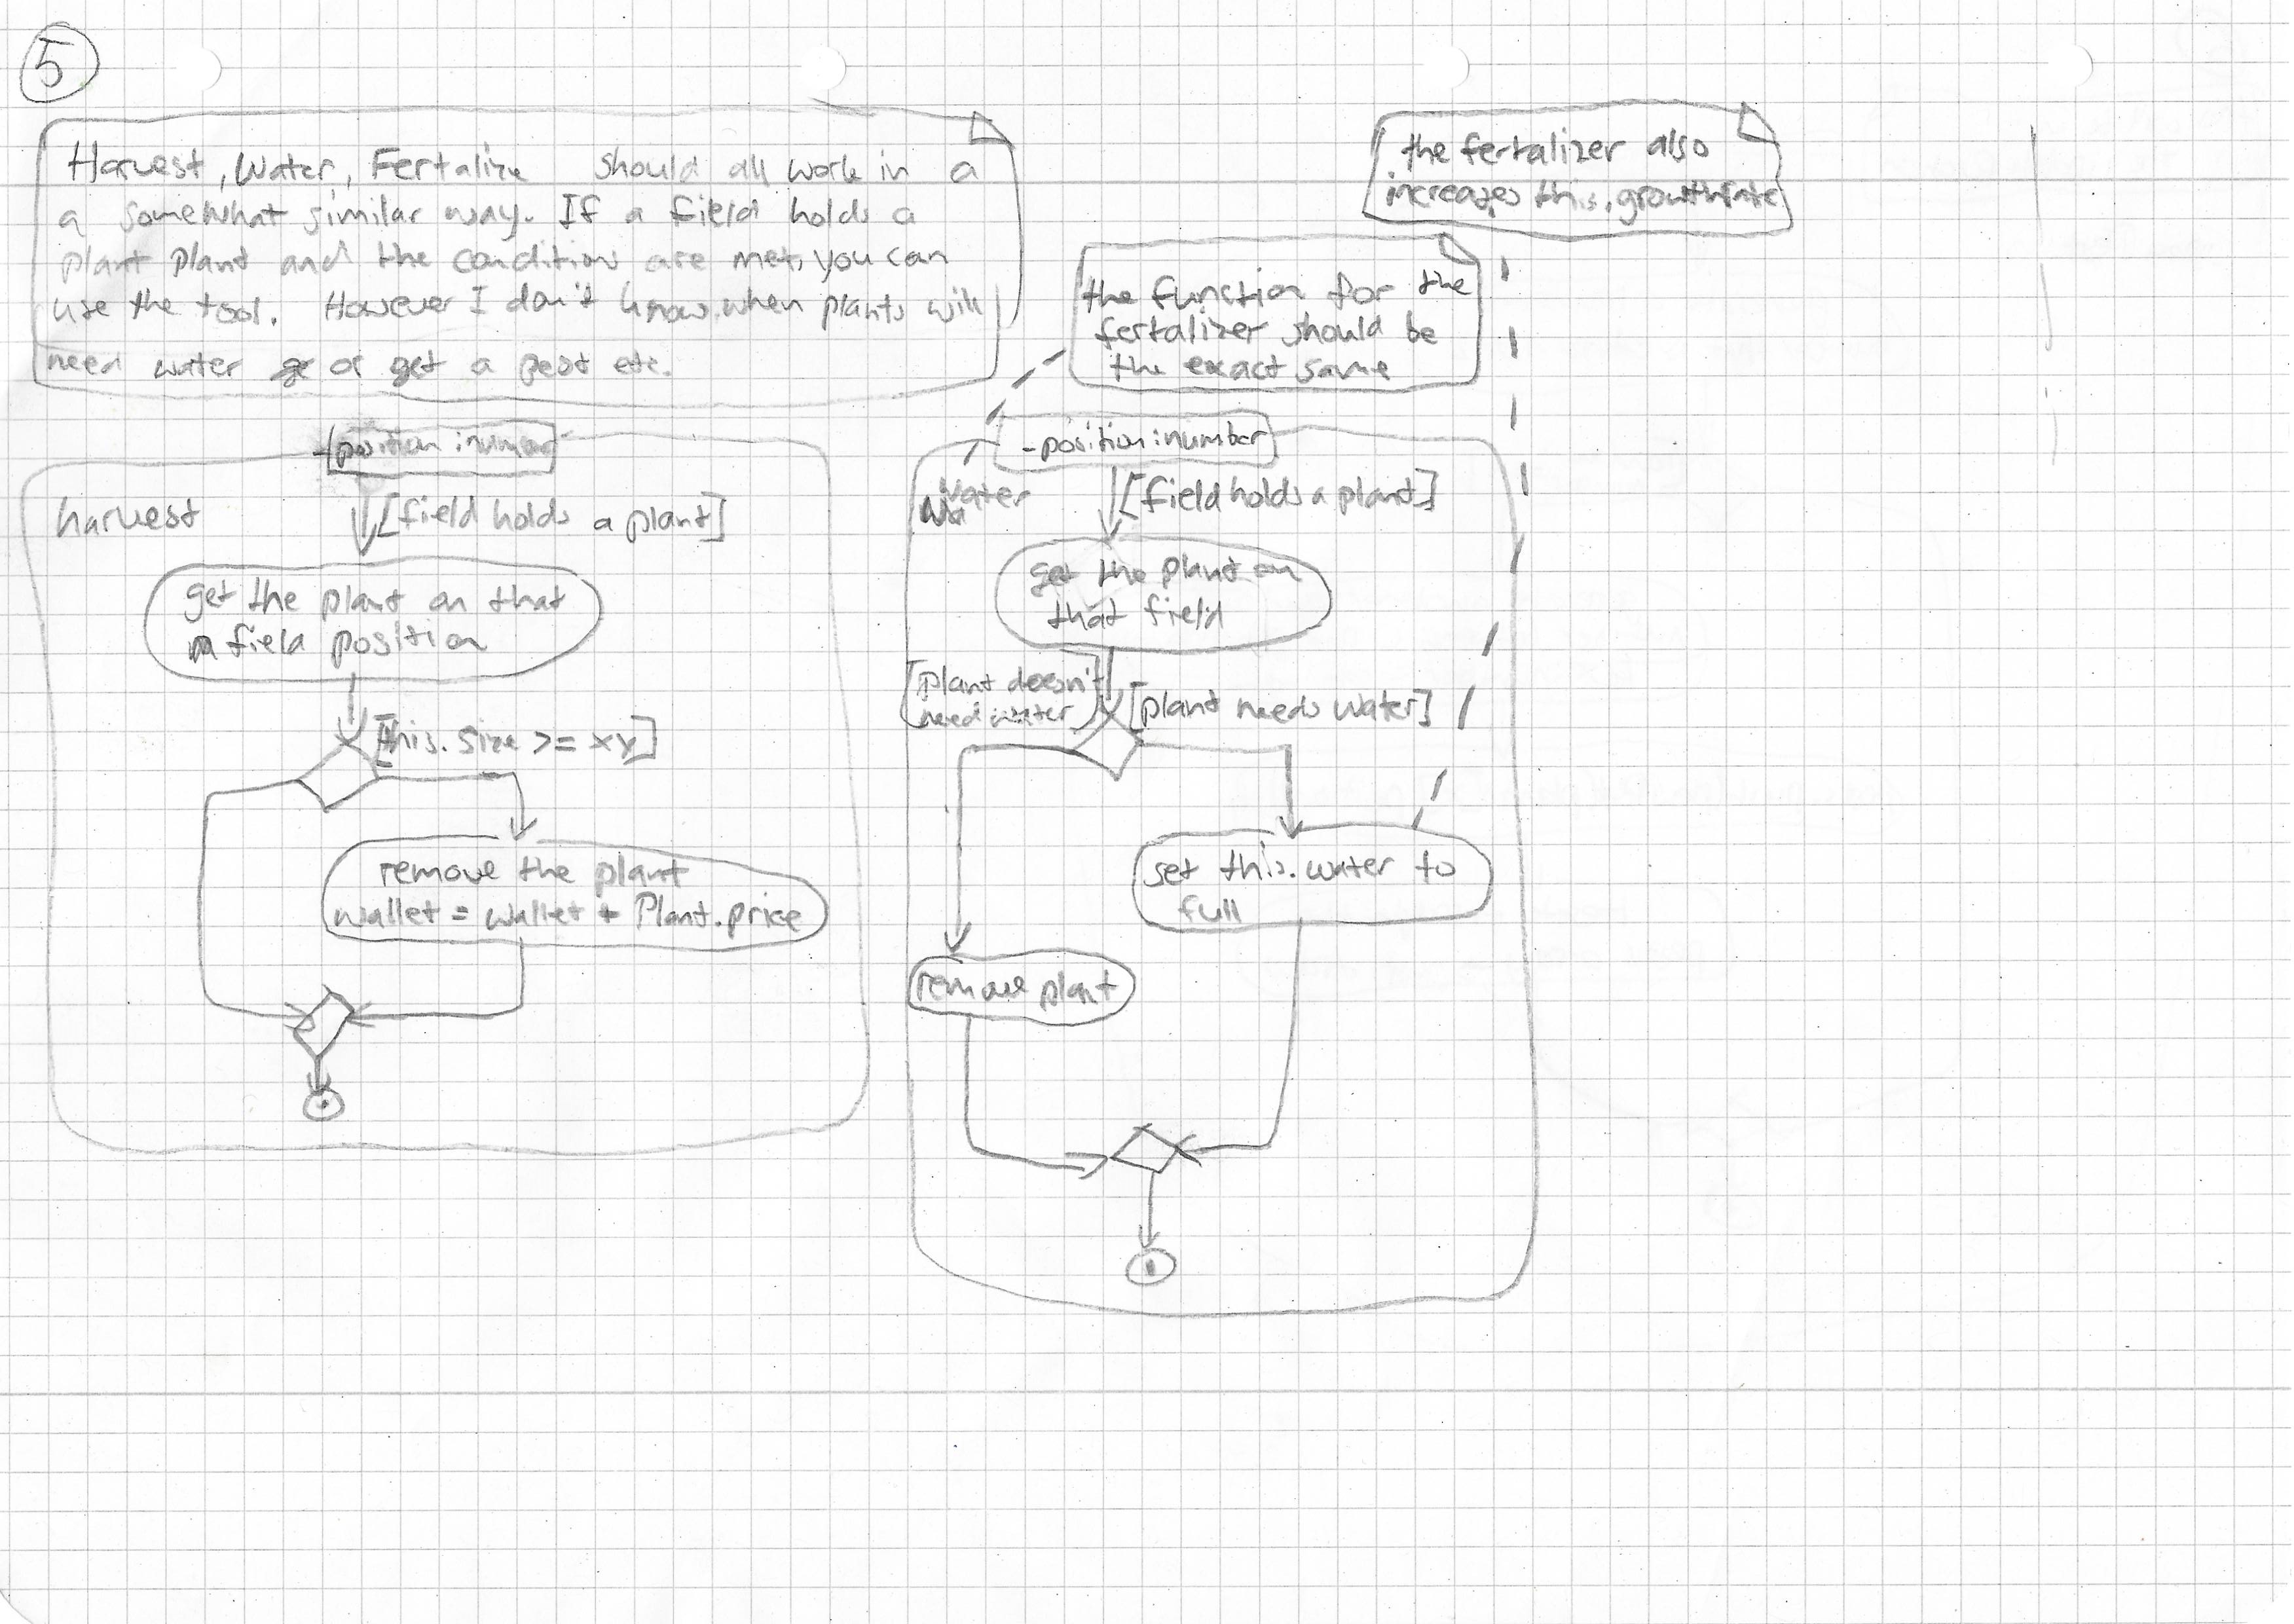 5
Harvest, Water, Fertalize should all work in a
a somewhat similar way. If a field holds a
plant plant and the conditions are met, you can
use the tool. However I don't know when plants will
need water or get a pest etc.
the fertalizer also
increases this.growthrate
the function for the
fertalizer should be
the exact same
-position:number
harvest
[field holds a plant]
get the plant on that
field position
[this.size >= xy]
remove the plant
wallet = wallet + Plant.price
-position:number
Water
[field holds a plant]
get the plant on
that field
[plant doesn't
need water]
[plant needs water]
set this.water to
full
remove plant